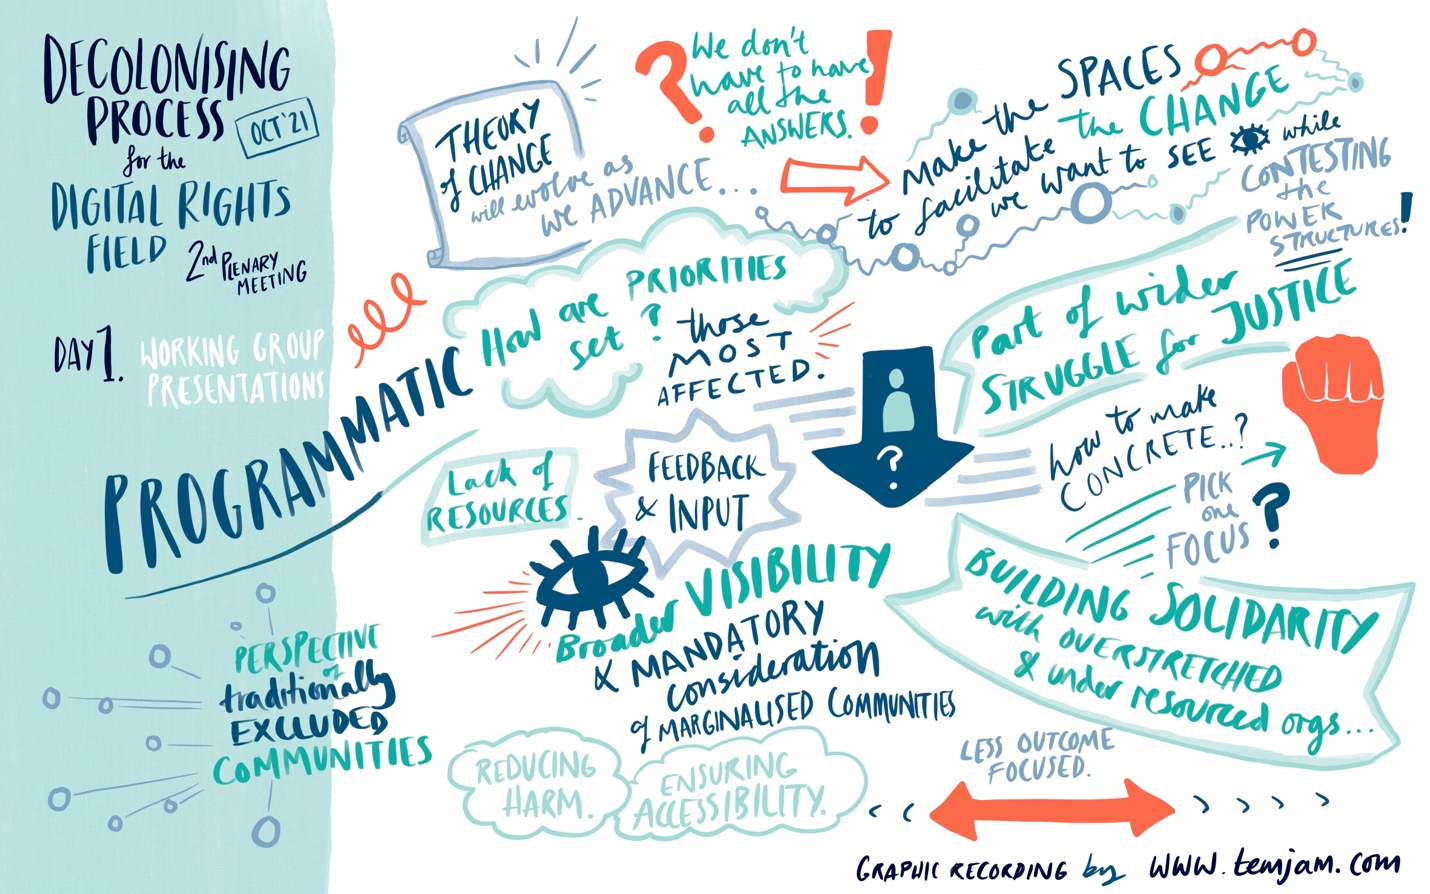 DECOLONISING
PROCESS
OCT'21
for the
DIGITAL RIGHTS
FIELD
2nd PLENARY
MEETING
DAY 1.
WORKING GROUP
PRESENTATIONS
PROGRAMMATIC
THEORY
of CHANGE
will evolve as
we ADVANCE...
?
We don't
have to have
all the
ANSWERS.
!
Make the SPACES
to facilitate the CHANGE
we want to SEE while
CONTESTING
the
POWER
STRUCTURES!
How are PRIORITIES
set?
those
MOST
AFFECTED.
?
Part of wider
STRUGGLE for JUSTICE
how to make
CONCRETE..?
PICK
one
FOCUS?
Lack of
RESOURCES.
FEEDBACK
& INPUT
Broader VISIBILITY
& MANDATORY
consideration
of MARGINALISED COMMUNITIES
BUILDING SOLIDARITY
with OVERSTRETCHED
& under resourced orgs...
PERSPECTIVE
of
traditionally
EXCLUDED
COMMUNITIES
REDUCING
HARM.
ENSURING
ACCESSIBILITY.
LESS OUTCOME
FOCUSED.
GRAPHIC RECORDING by www.temjam.com